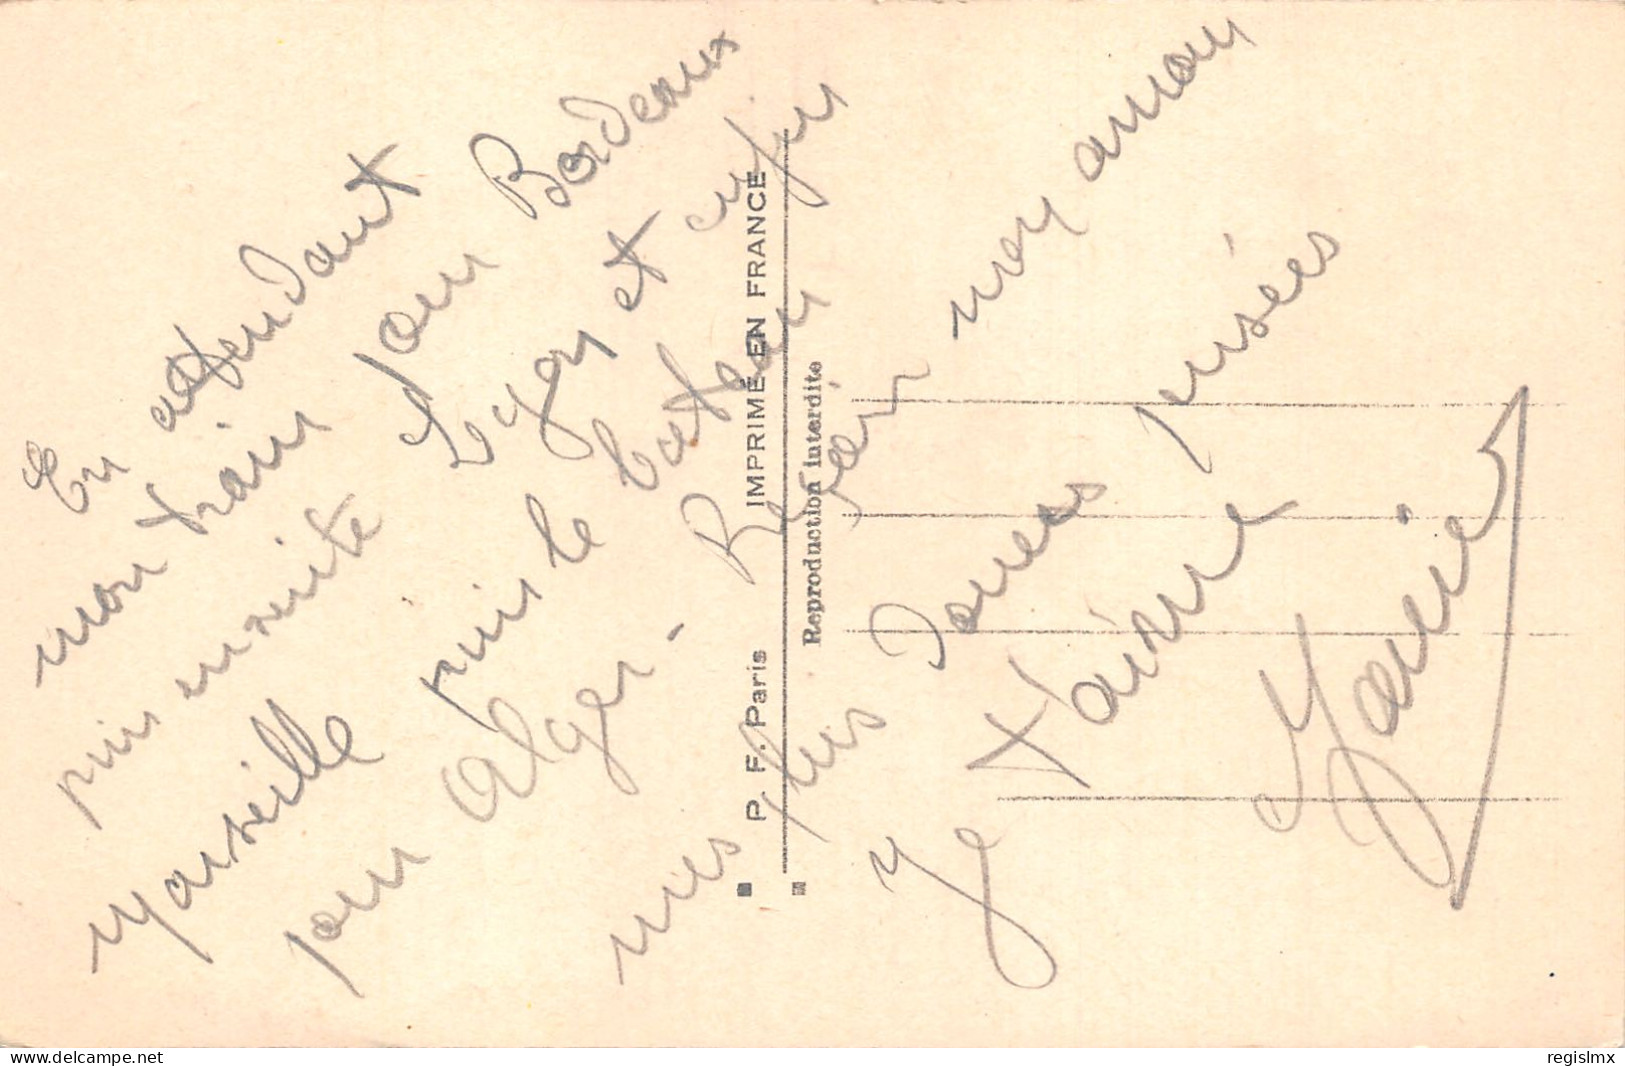 En attendant
mon train pour Bordeaux
puis ensuite Lyon et enfin
Marseille puis le bateau
pour Alger - Reçoir mon amour
mes plus Douces pensées
Je t'aime
Xavier
P. F. Paris IMPRIMÉ EN FRANCE
Reproduction interdite
delcampe.net
regislmx